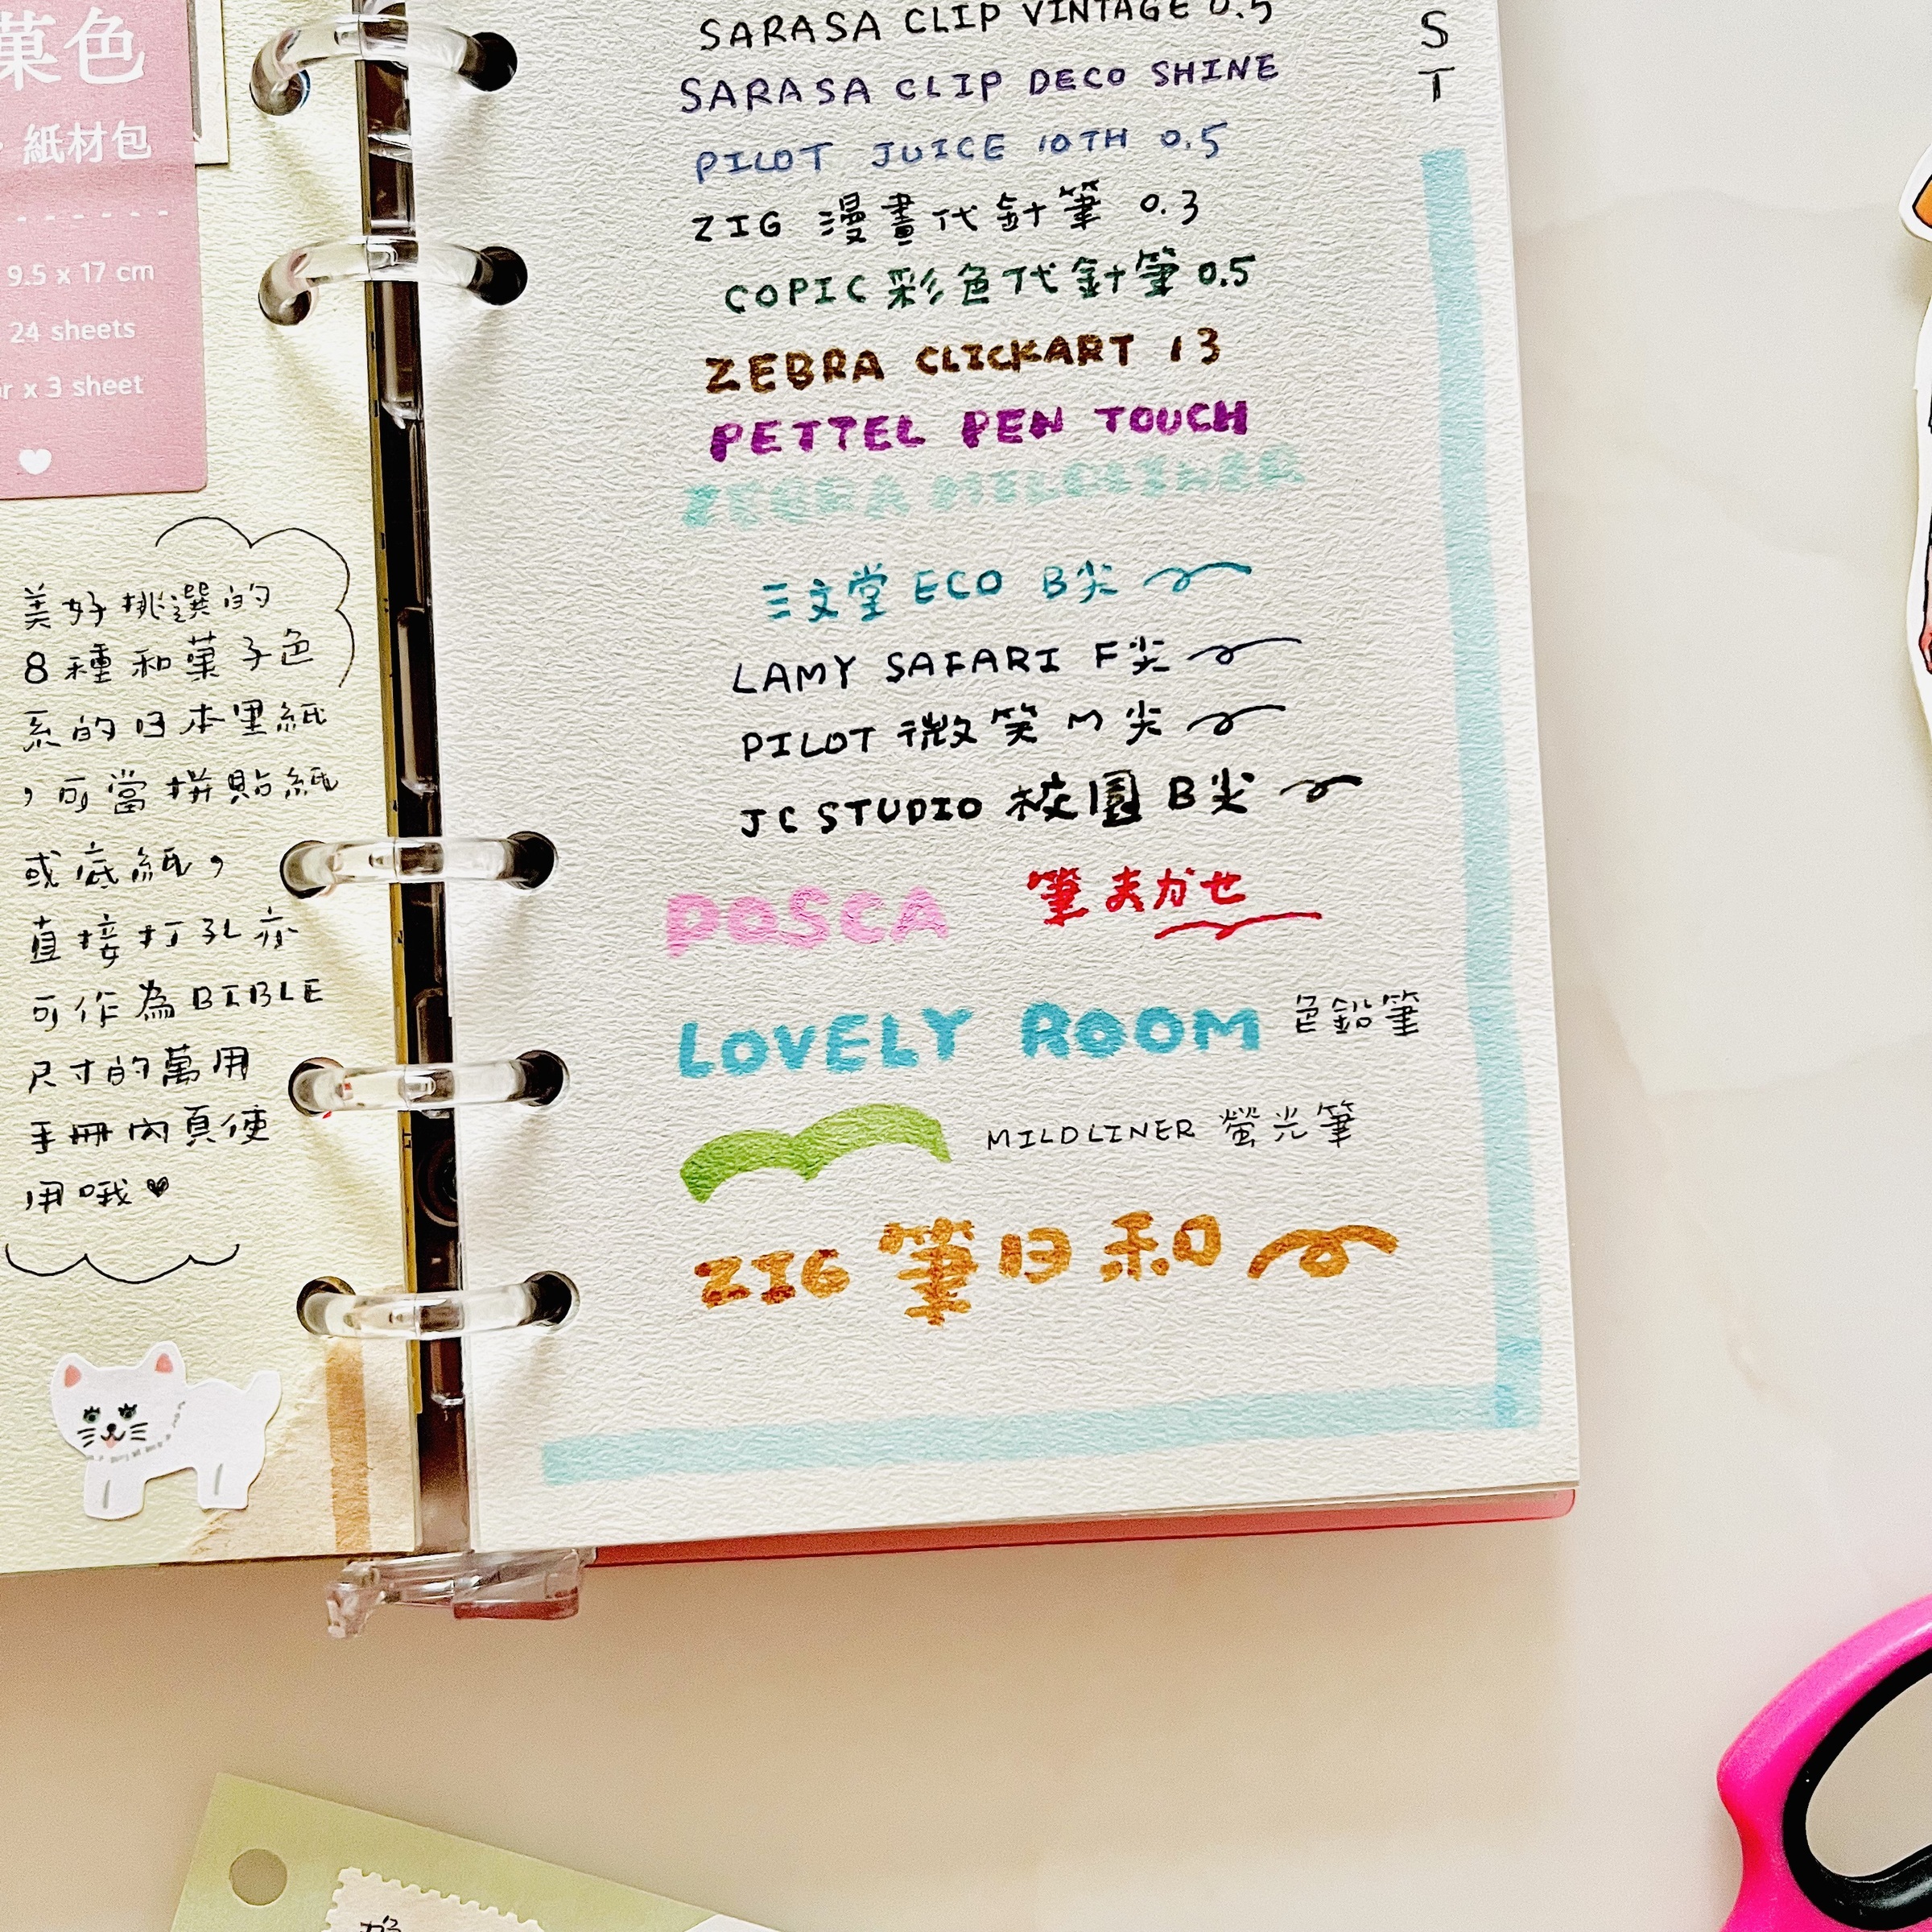 菓色
紙材包
9.5 x 17 cm
24 sheets
r x 3 sheet
美好挑選的
8種和菓子色
系的日本里紙
，可當拼貼紙
或底紙，
直接打孔亦
可作為BIBLE
尺寸的萬用
手冊內頁使
用哦♥
SARASA CLIP VINTAGE 0.5
SARASA CLIP DECO SHINE
PILOT JUICE 10TH 0.5
ZIG 漫畫代針筆 0.3
COPIC 彩色代針筆 0.5
ZEBRA CLICKART 13
PETTEL PEN TOUCH
ZEBRA MILDLINER
三文堂 ECO B尖
LAMY SAFARI F尖
PILOT 微笑 M尖
JC STUDIO 校園 B尖
POSCA 筆まかせ
LOVELY ROOM 色鉛筆
MILDLINER 螢光筆
ZIG 筆日和
S
T